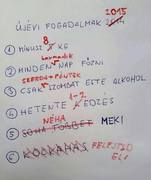 2015
ÚJÉVI FOGADALMAK 2014
8
① MÍNUSZ 5 KG
harmadik
② MINDEN NAP FŐZNI
SZERDA + PÉNTEK
③ CSAK SZOMBAT ESTE ALKOHOL
1-2
④ HETENTE EDZÉS
NÉHA
⑤ SOHA TÖBBET MEKI
⑥ FELEJTSD
EL!